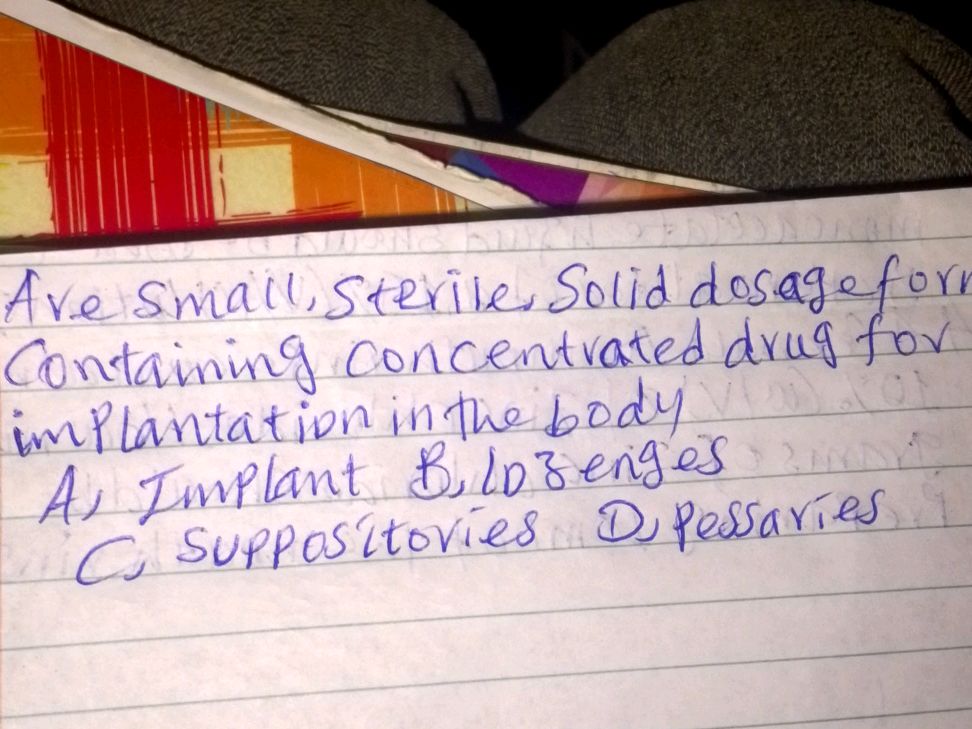 Are small, sterile, Solid dosage form
Containing concentrated drug for
implantation in the body
A, Implant B, lozenges
C, suppositories D, pessaries